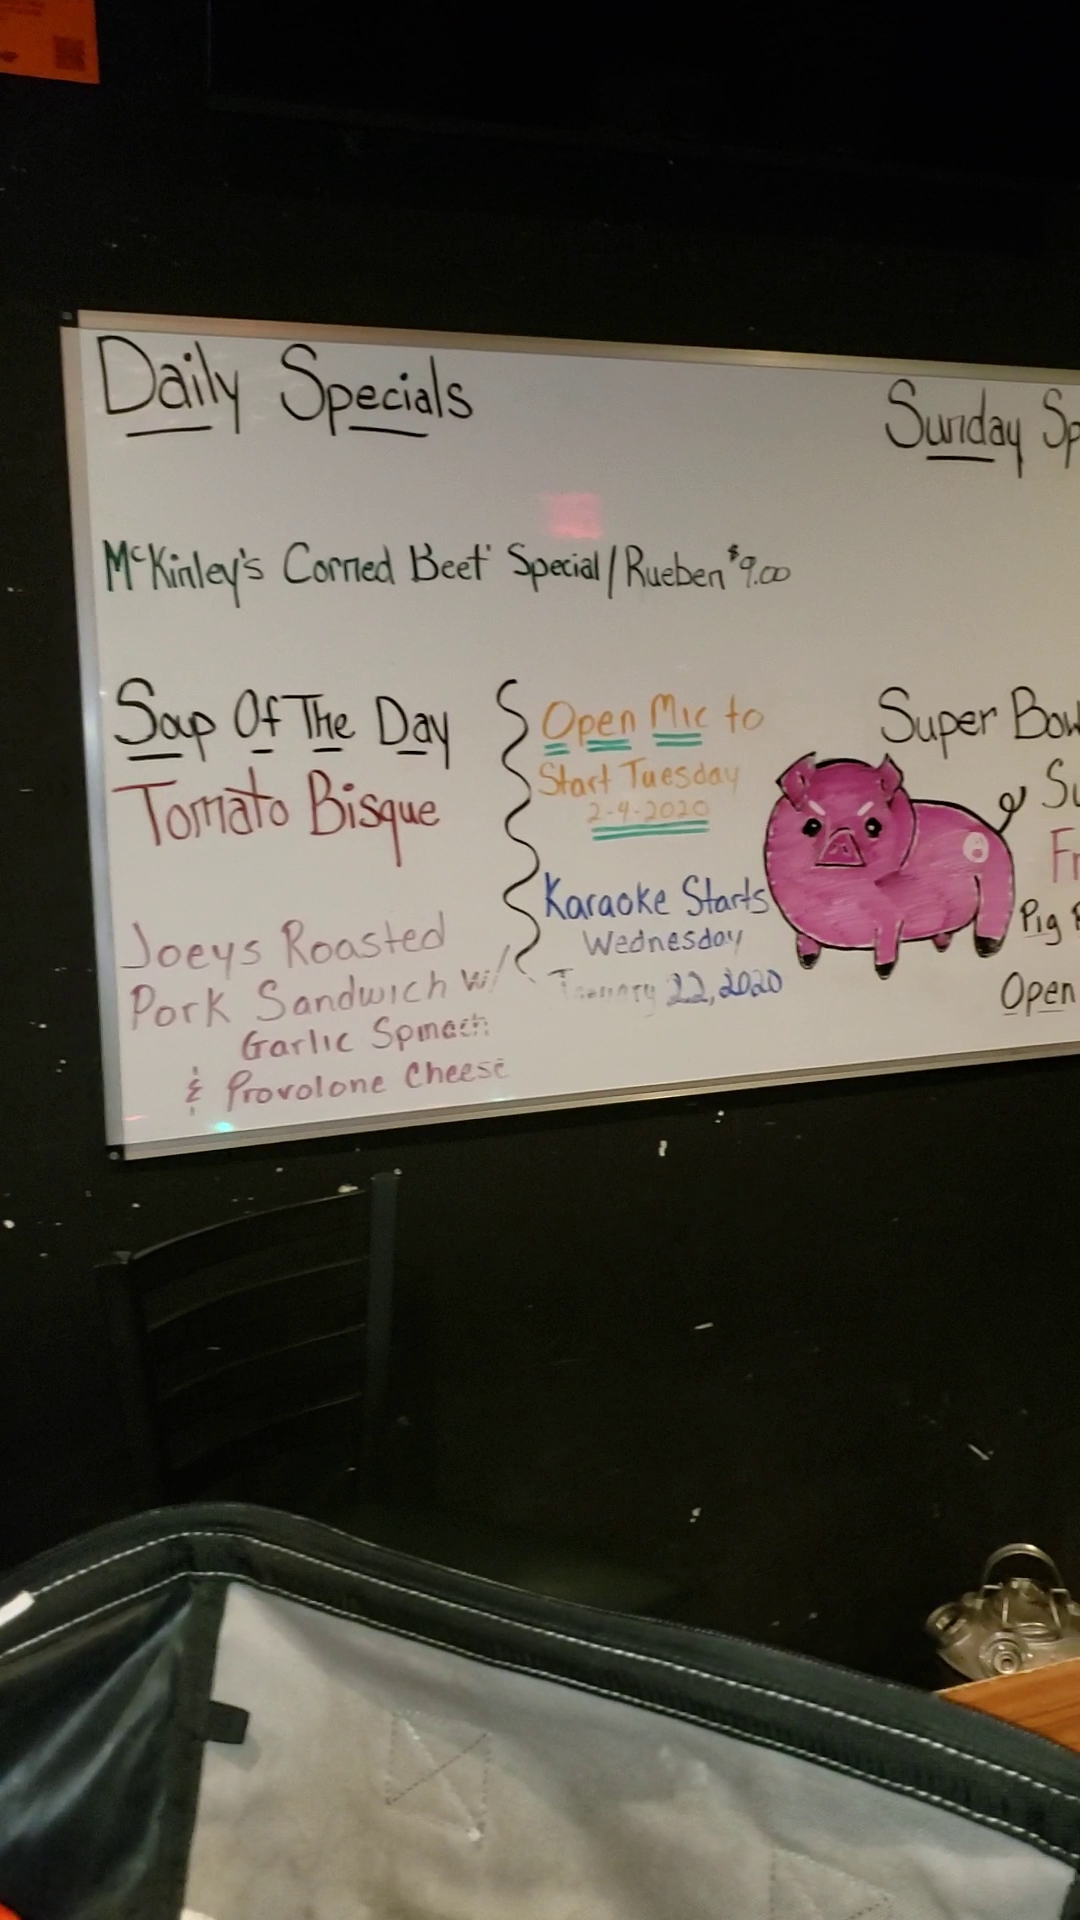 Daily Specials
McKinley's Corned Beef Special/Rueben $9.00
Soup Of The Day
Tomato Bisque
Joeys Roasted
Pork Sandwich w/
Garlic Spinach
& Provolone Cheese
Open Mic to
Start Tuesday
2-4-2020
Karaoke Starts
Wednesday
January 22, 2020
Sunday Sp
Super Bow
Su
Fr
Pig
Open